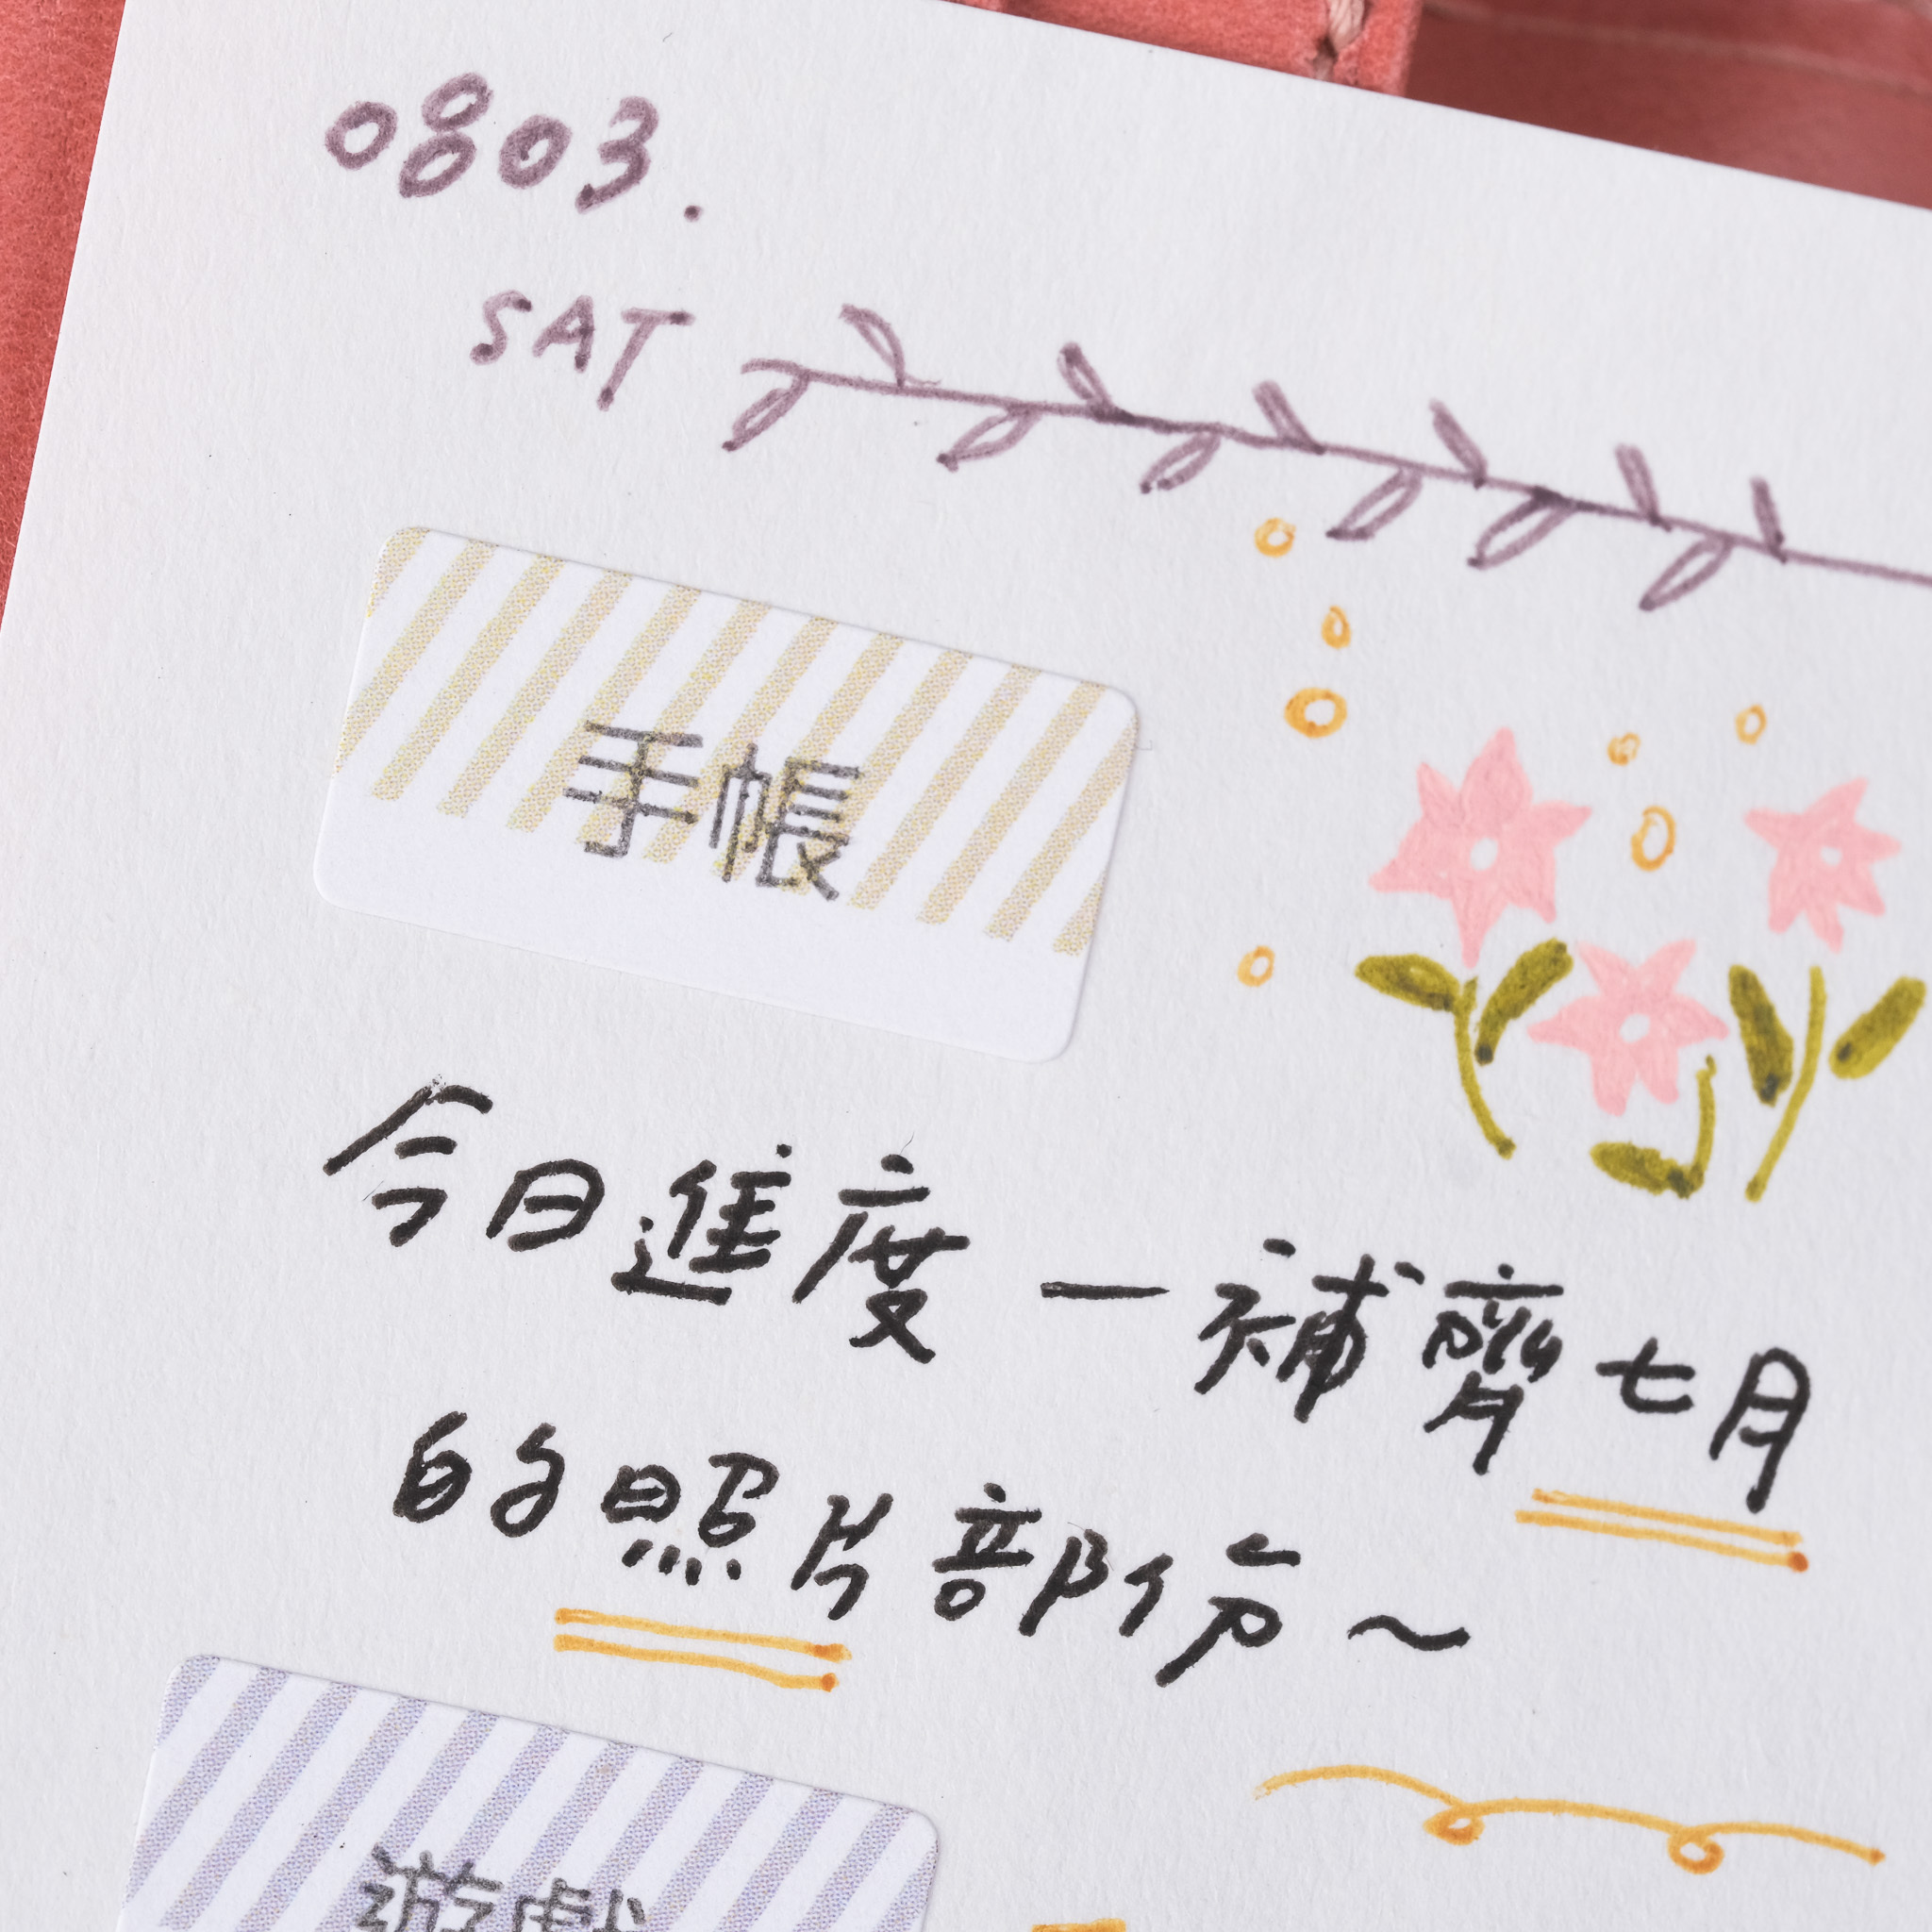 0803.
SAT
手帳
今日進度 — 補齊七月
的照片部份~
遊戲